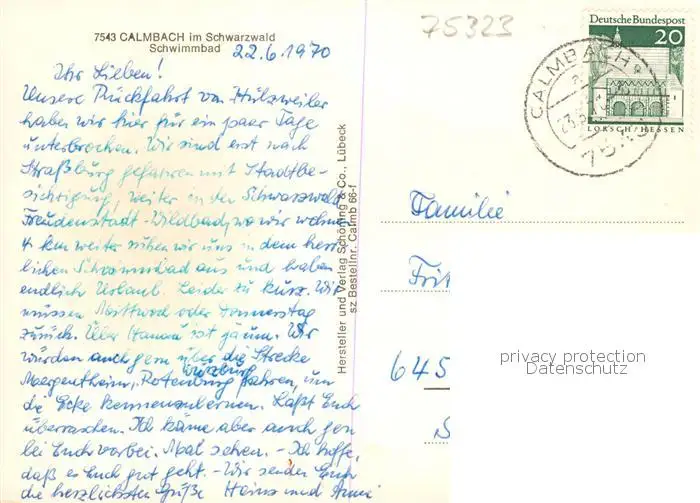 7543 CALMBACH im Schwarzwald
Schwimmbad
22.6.1970
Ihr Lieben!
Unsere Rückfahrt von Hülzweiler
haben wir hier für ein paar Tage
unterbrochen. Wir sind erst nach
Straßburg gefahren mit Stadtbe-
sichtigung, weiter in den Schwarzwald
Freudenstadt-Wildbad, wo wir wohnen
4 km weiter ruhen wir uns in dem herr-
lichen Schwimmbad aus und haben
endlich Urlaub. Leider zu kurz. Wir
müssen Mittwoch oder Donnerstag
zurück. Über Hanau ist ja um. Wir
würden auch gern über die Strecke
Mergentheim, Rotenburg Würzburg fahren, um
die Ecke kennenzulernen. Laßt Euch
überraschen. Ich käme aber auch gern
bei Euch vorbei. Mal sehen. - Ich hoffe,
daß es Euch gut geht. - Wir senden Euch
die herzlichsten Grüße Heins und
Hersteller und Verlag Schöning & Co., Lübeck
sz Bestellnr. Calmb 66-f
75323
Deutsche Bundespost
20
LORSCH/HESSEN
CALMBACH
Familie
645
privacy protection
Datenschutz